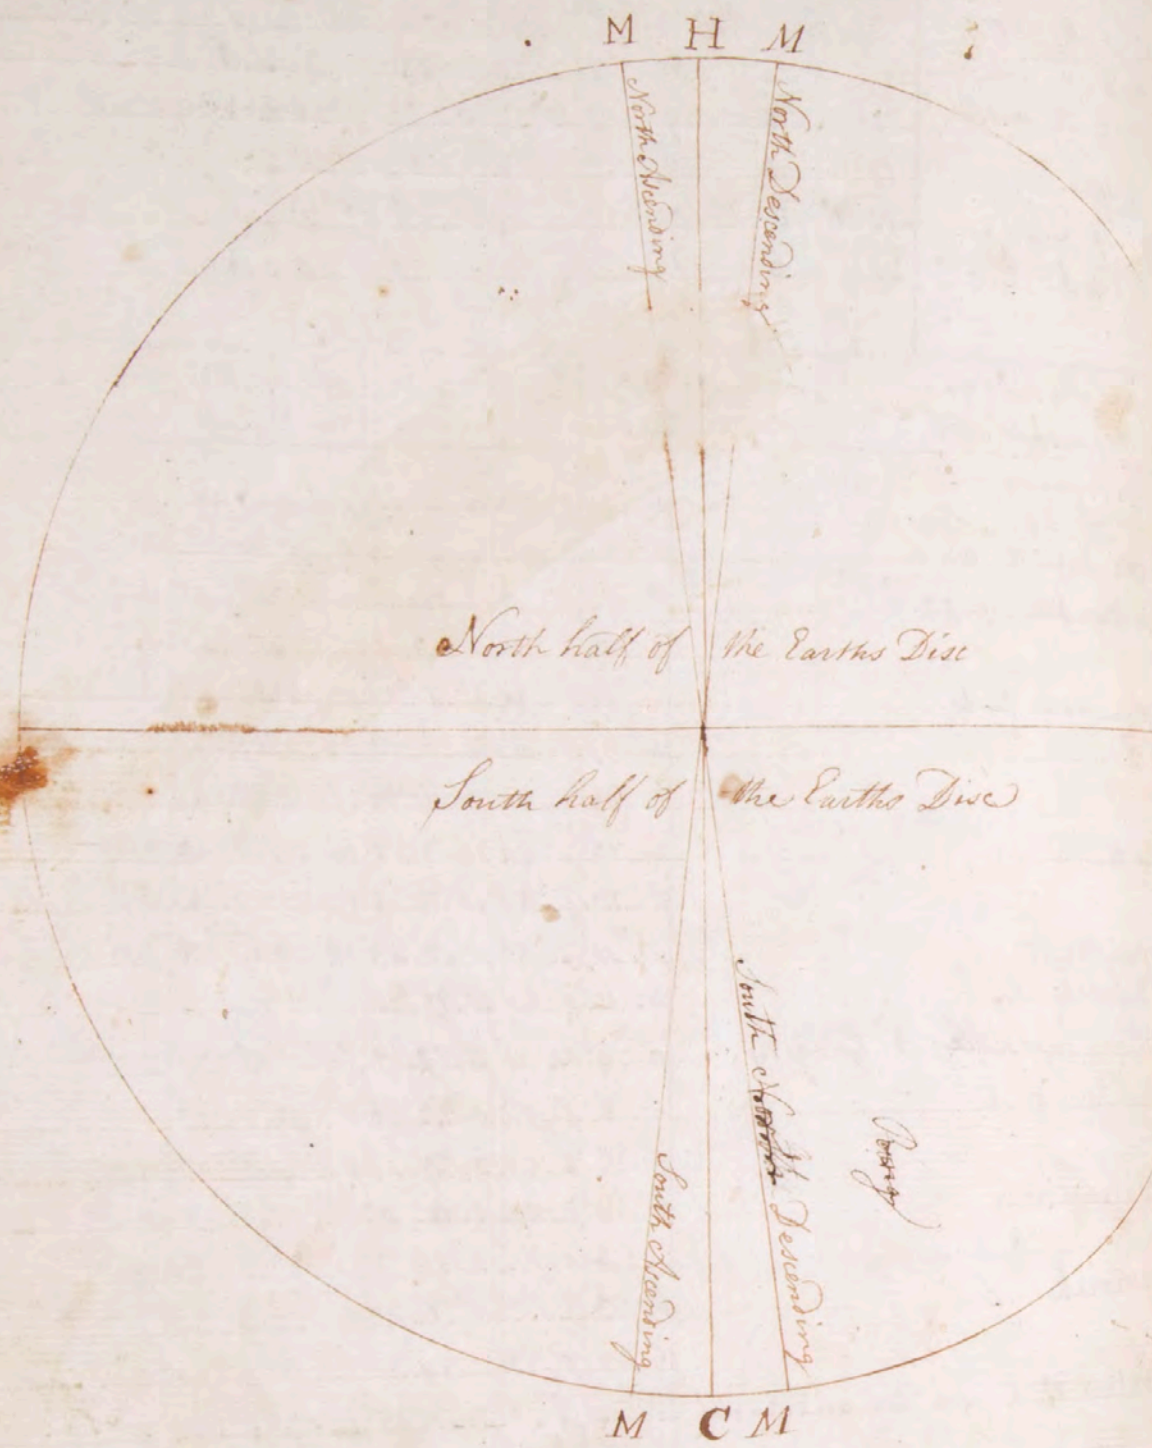 M H M
North Ascending
North Descending
North half of the Earths Disc
South half of the Earths Disc
South Descending
South Ascending
M C M